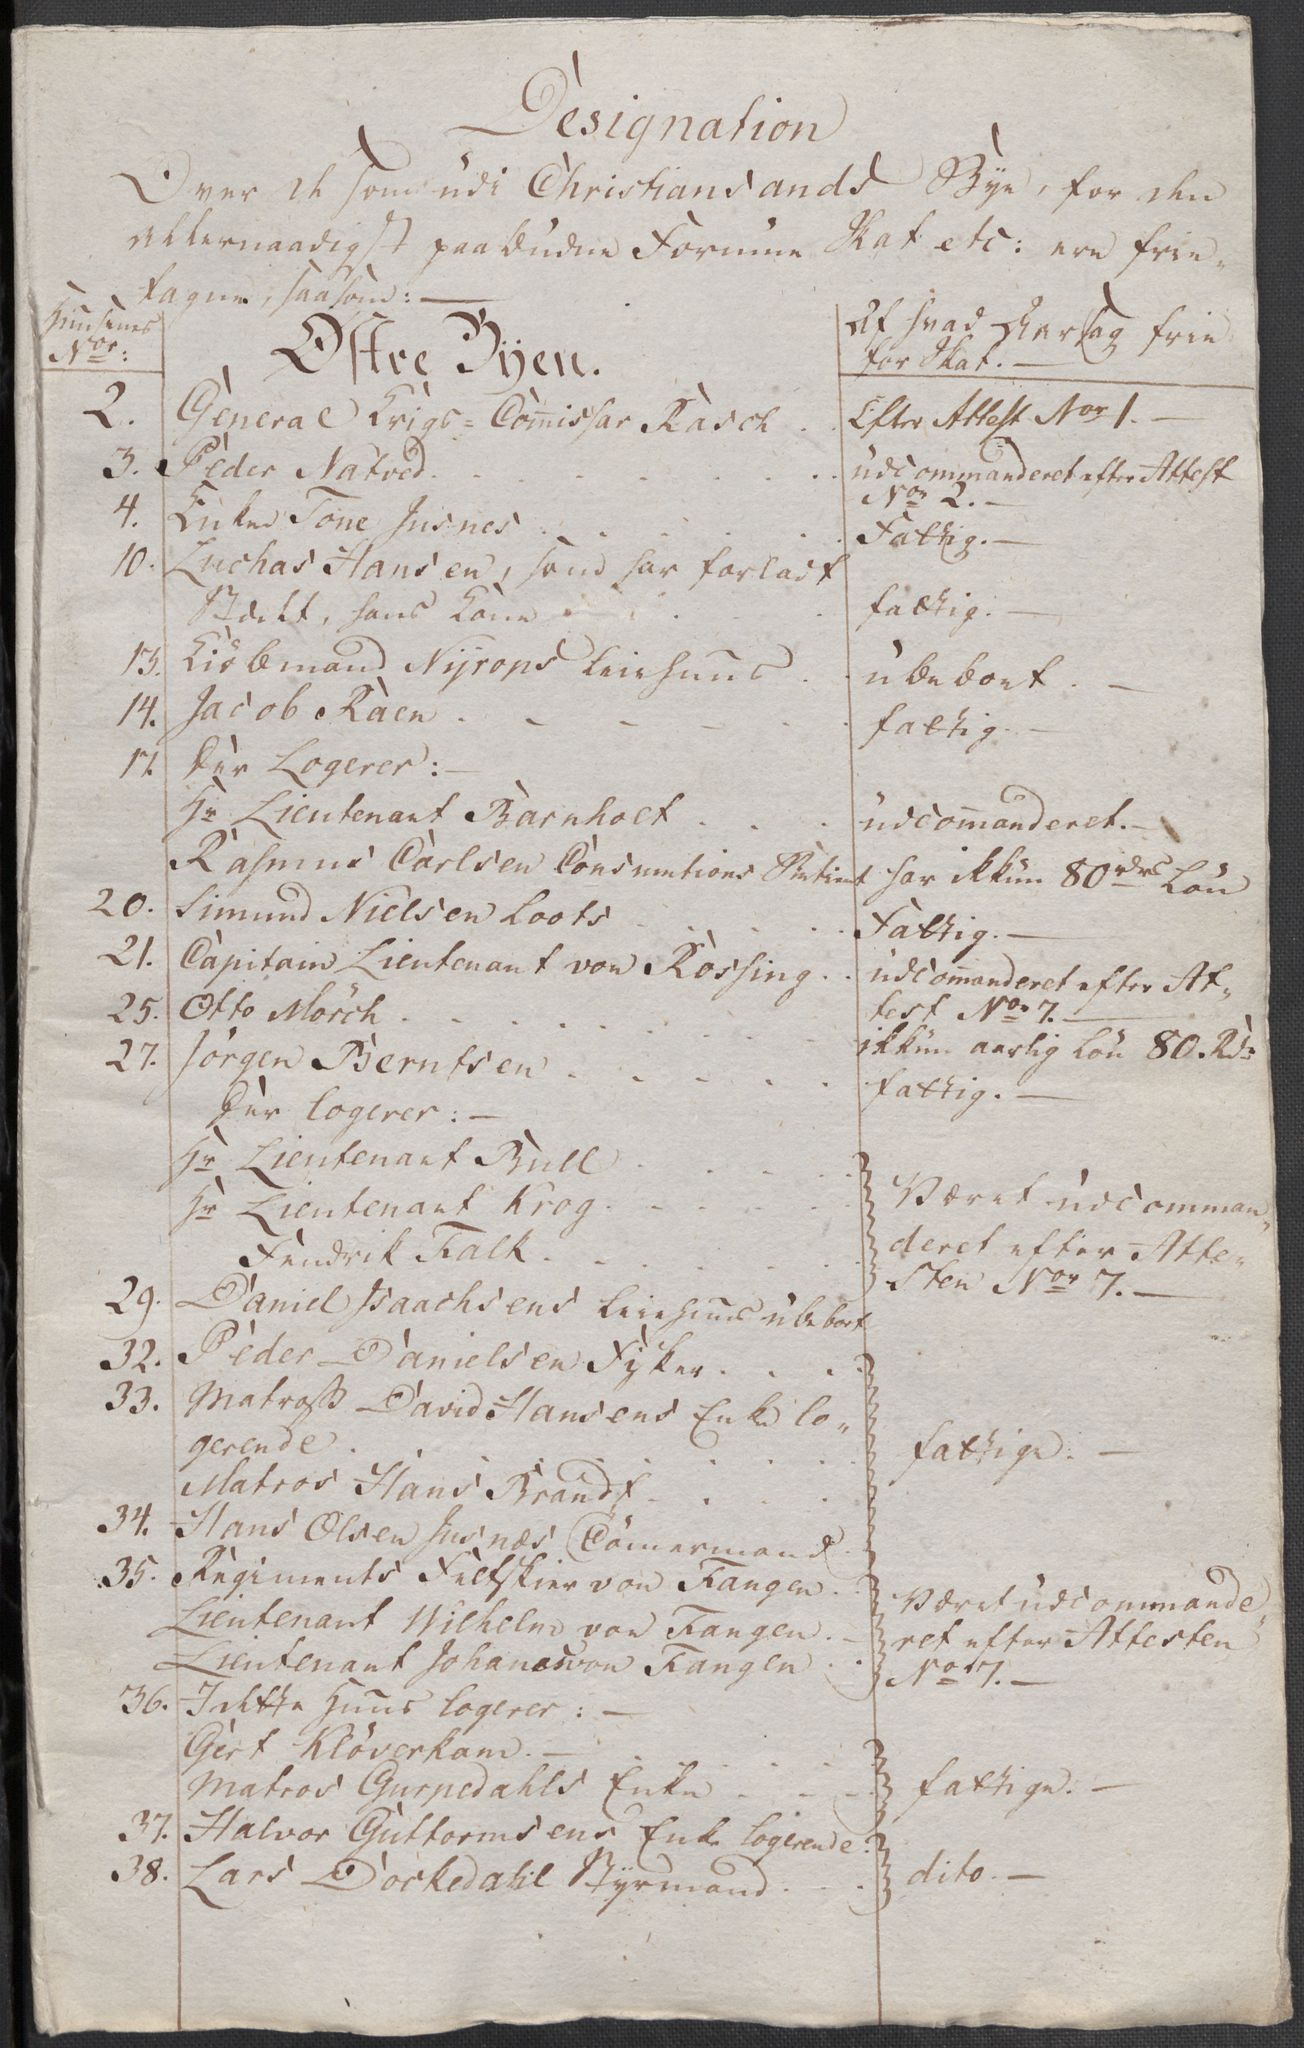 Designation
Over de som udi Christiansands Bye, for den
allernaadigst paabudne Formue Skat etc: ere frie-
tagne, saasom:—
Huusenes
Nor:
Østre Byen.
Af hvad Aarsag frie
for Skat.—
2. General Krigs-Commissar Rasch . . Efter Attest Nor 1.—
3. Peder Natved . . . udcommanderet efter Attest
Nor 2.—
4. Enken Tone Jusnes . . . Fattig.—
10. Luchas Hansen, som har forladt
Stædet, hans Kone . . . fattig.—
13. Kiöbmand Nyrops Leiehuus . . ubeboet.—
14. Jacob Raen . . . fattig.—
17. Der Logerer:—
Hr Lieutenant Barnholt . . . udcommanderet.—
Rasmus Carlsen Consumtions Betient har ikkun 80 rdrs Lön
20. Simund Nielsen Loots . . . Fattig.—
21. Capitain Lieutenant von Rossing . . udcommanderet efter At-
test Nor 7.—
25. Otto Mörch . . . ikkun aarlig Lön 80 Rdr
27. Jörgen Berntsen . . . fattig.—
Der logerer:—
Hr Lieutenant Bull . . .
Hr Lieutenant Krog . . . Været udcomman-
Fendrik Falk . . . deret efter Atte-
sten Nor 7.—
29. Daniel Isaachsens Leiehuus ubeboet
32. Peder Danielsen Fyker . . .
33. Matross David Hansens Enke lo-
gerende . . . fattige.—
Matros Hans Brandt . . .
34. Hans Olsen Jusnæs Tömermand
35. Regiments Feltskier von Fangen . . Været udcommande-
Lieutenant Wilhelm von Fangen . . ret efter Attesten
Lieutenant Johan von Fangen . . No 7.—
36. I dette Huus logerer:—
Gert Klöverkam.—
Matros Gurpedahls Enke . . . fattige.—
37. Halvor Guttormsens Enke logerende.
38. Lars Dockedahl Styrmand . . . dito.—